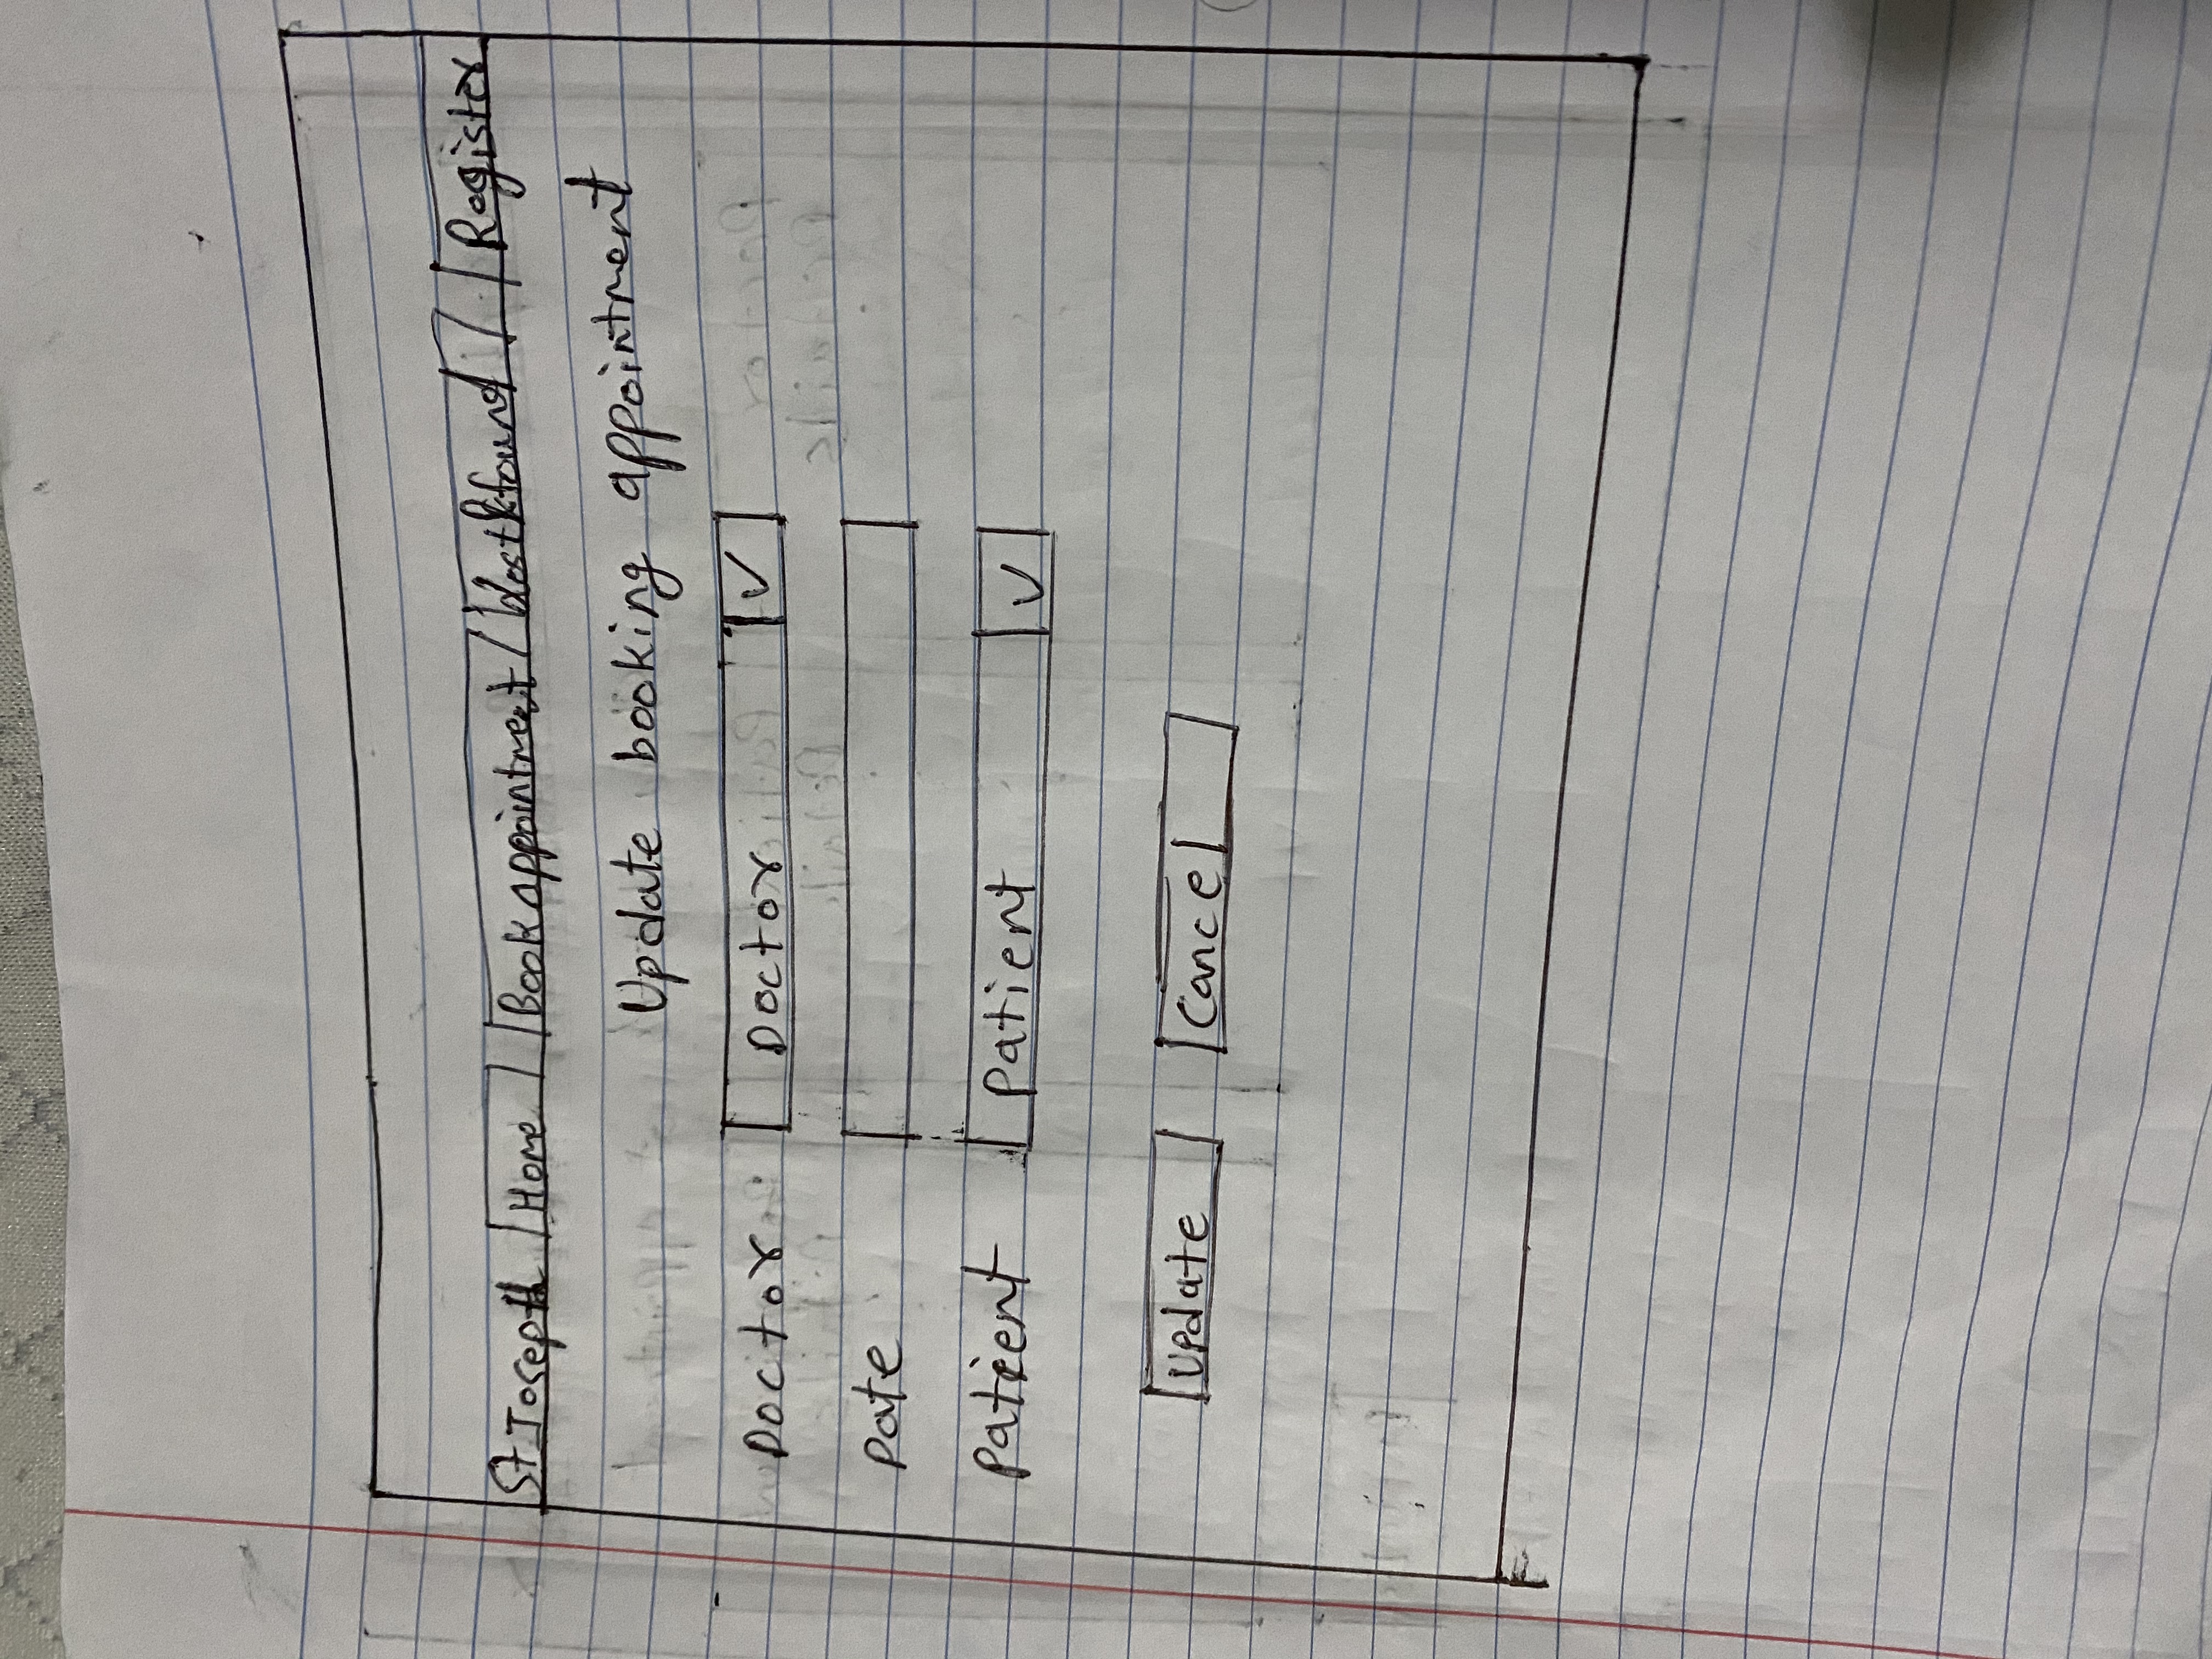 St Joseph Home Book appointment Lost & found Register
Update booking appointment
Doctor Doctor
Date
Patient Patient
Update Cancel